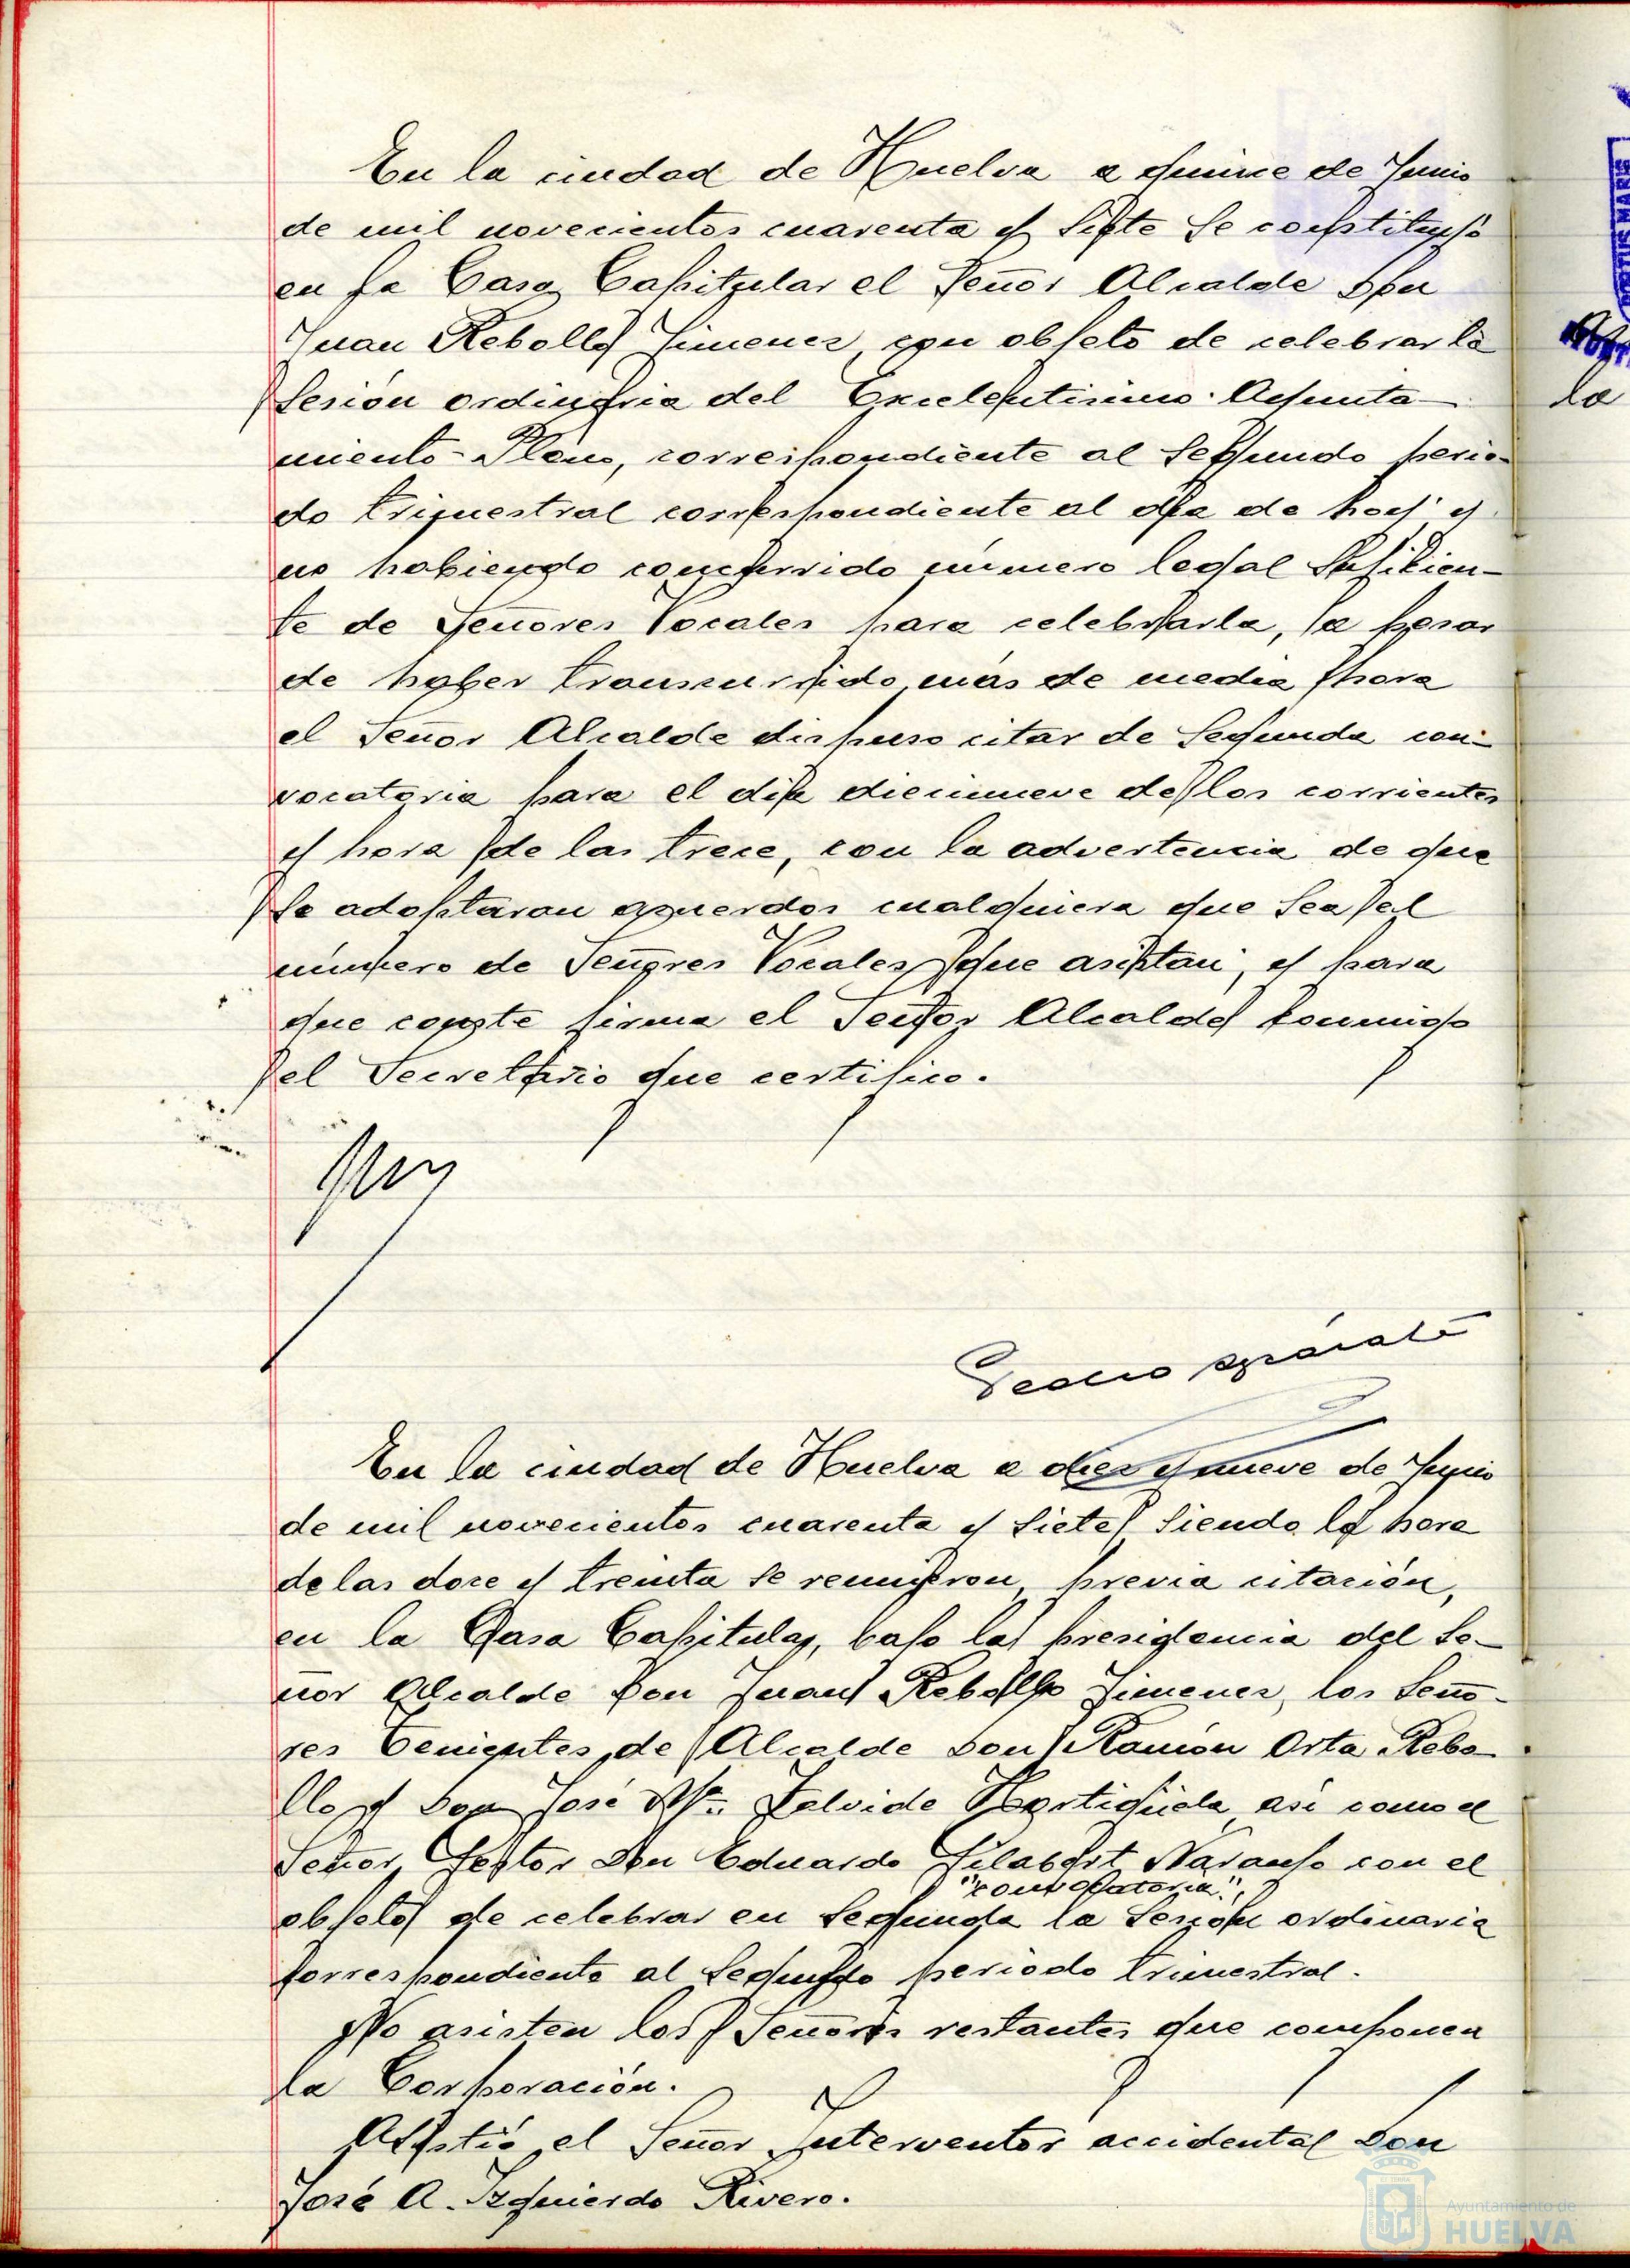 En la ciudad de Huelva a quince de Junio
de mil novecientos cuarenta y siete se constituyó
en la Casa Capitular el Señor Alcalde Don
Juan Rebollo Jimenez, con objeto de celebrar la
sesión ordinaria del Excelentisimo Ayunta-
miento-Pleno, correspondiente al segundo perio-
do trimestral correspondiente al dia de hoy y
no habiendo concurrido número legal suficien-
te de Señores Vocales para celebrarla, a pesar
de haber transcurrido más de media hora
el Señor Alcalde dispuso citar de segunda con-
vocatoria para el dia diecinueve de los corrientes
y hora de las trece, con la advertencia de que
se adoptaran acuerdos cualquiera que sea el
número de Señores Vocales que asistan, y para
que conste firma el Señor Alcalde conmigo
el Secretario que certifico.
Pedro
En la ciudad de Huelva a diez y nueve de Junio
de mil novecientos cuarenta y siete siendo la hora
de las doce y treinta se reunieron, previa citación,
en la Casa Capitular, bajo la presidencia del Se-
ñor Alcalde Don Juan Rebollo Jimenez, los Seño-
res Tenientes de Alcalde Don Ramón Orta Rebo-
llo y Don José Mª. Zelvide Hortigüela así como el
Señor Gestor Don Eduardo Gilabert Naranjo con el
"convocatoria",
objeto de celebrar en segunda la sesión ordinaria
correspondiente al segundo periodo trimestral.
No asisten los Señores restantes que componen
la Corporación.
Asistió el Señor Interventor accidental Don
José A. Izquierdo Rivero.
PORTUS MARIS
la
Ayuntamiento de
HUELVA